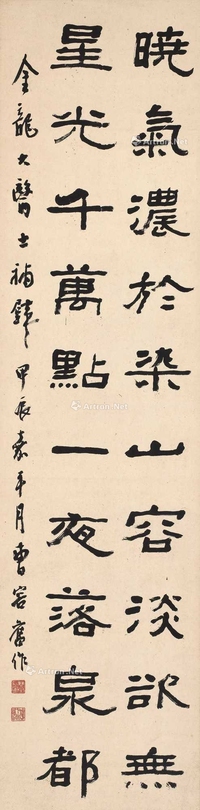 曉氣濃於染山容淡欲無
星光千萬點一夜落泉都
金龍大醫士補壁甲辰嘉平月曹容舊作